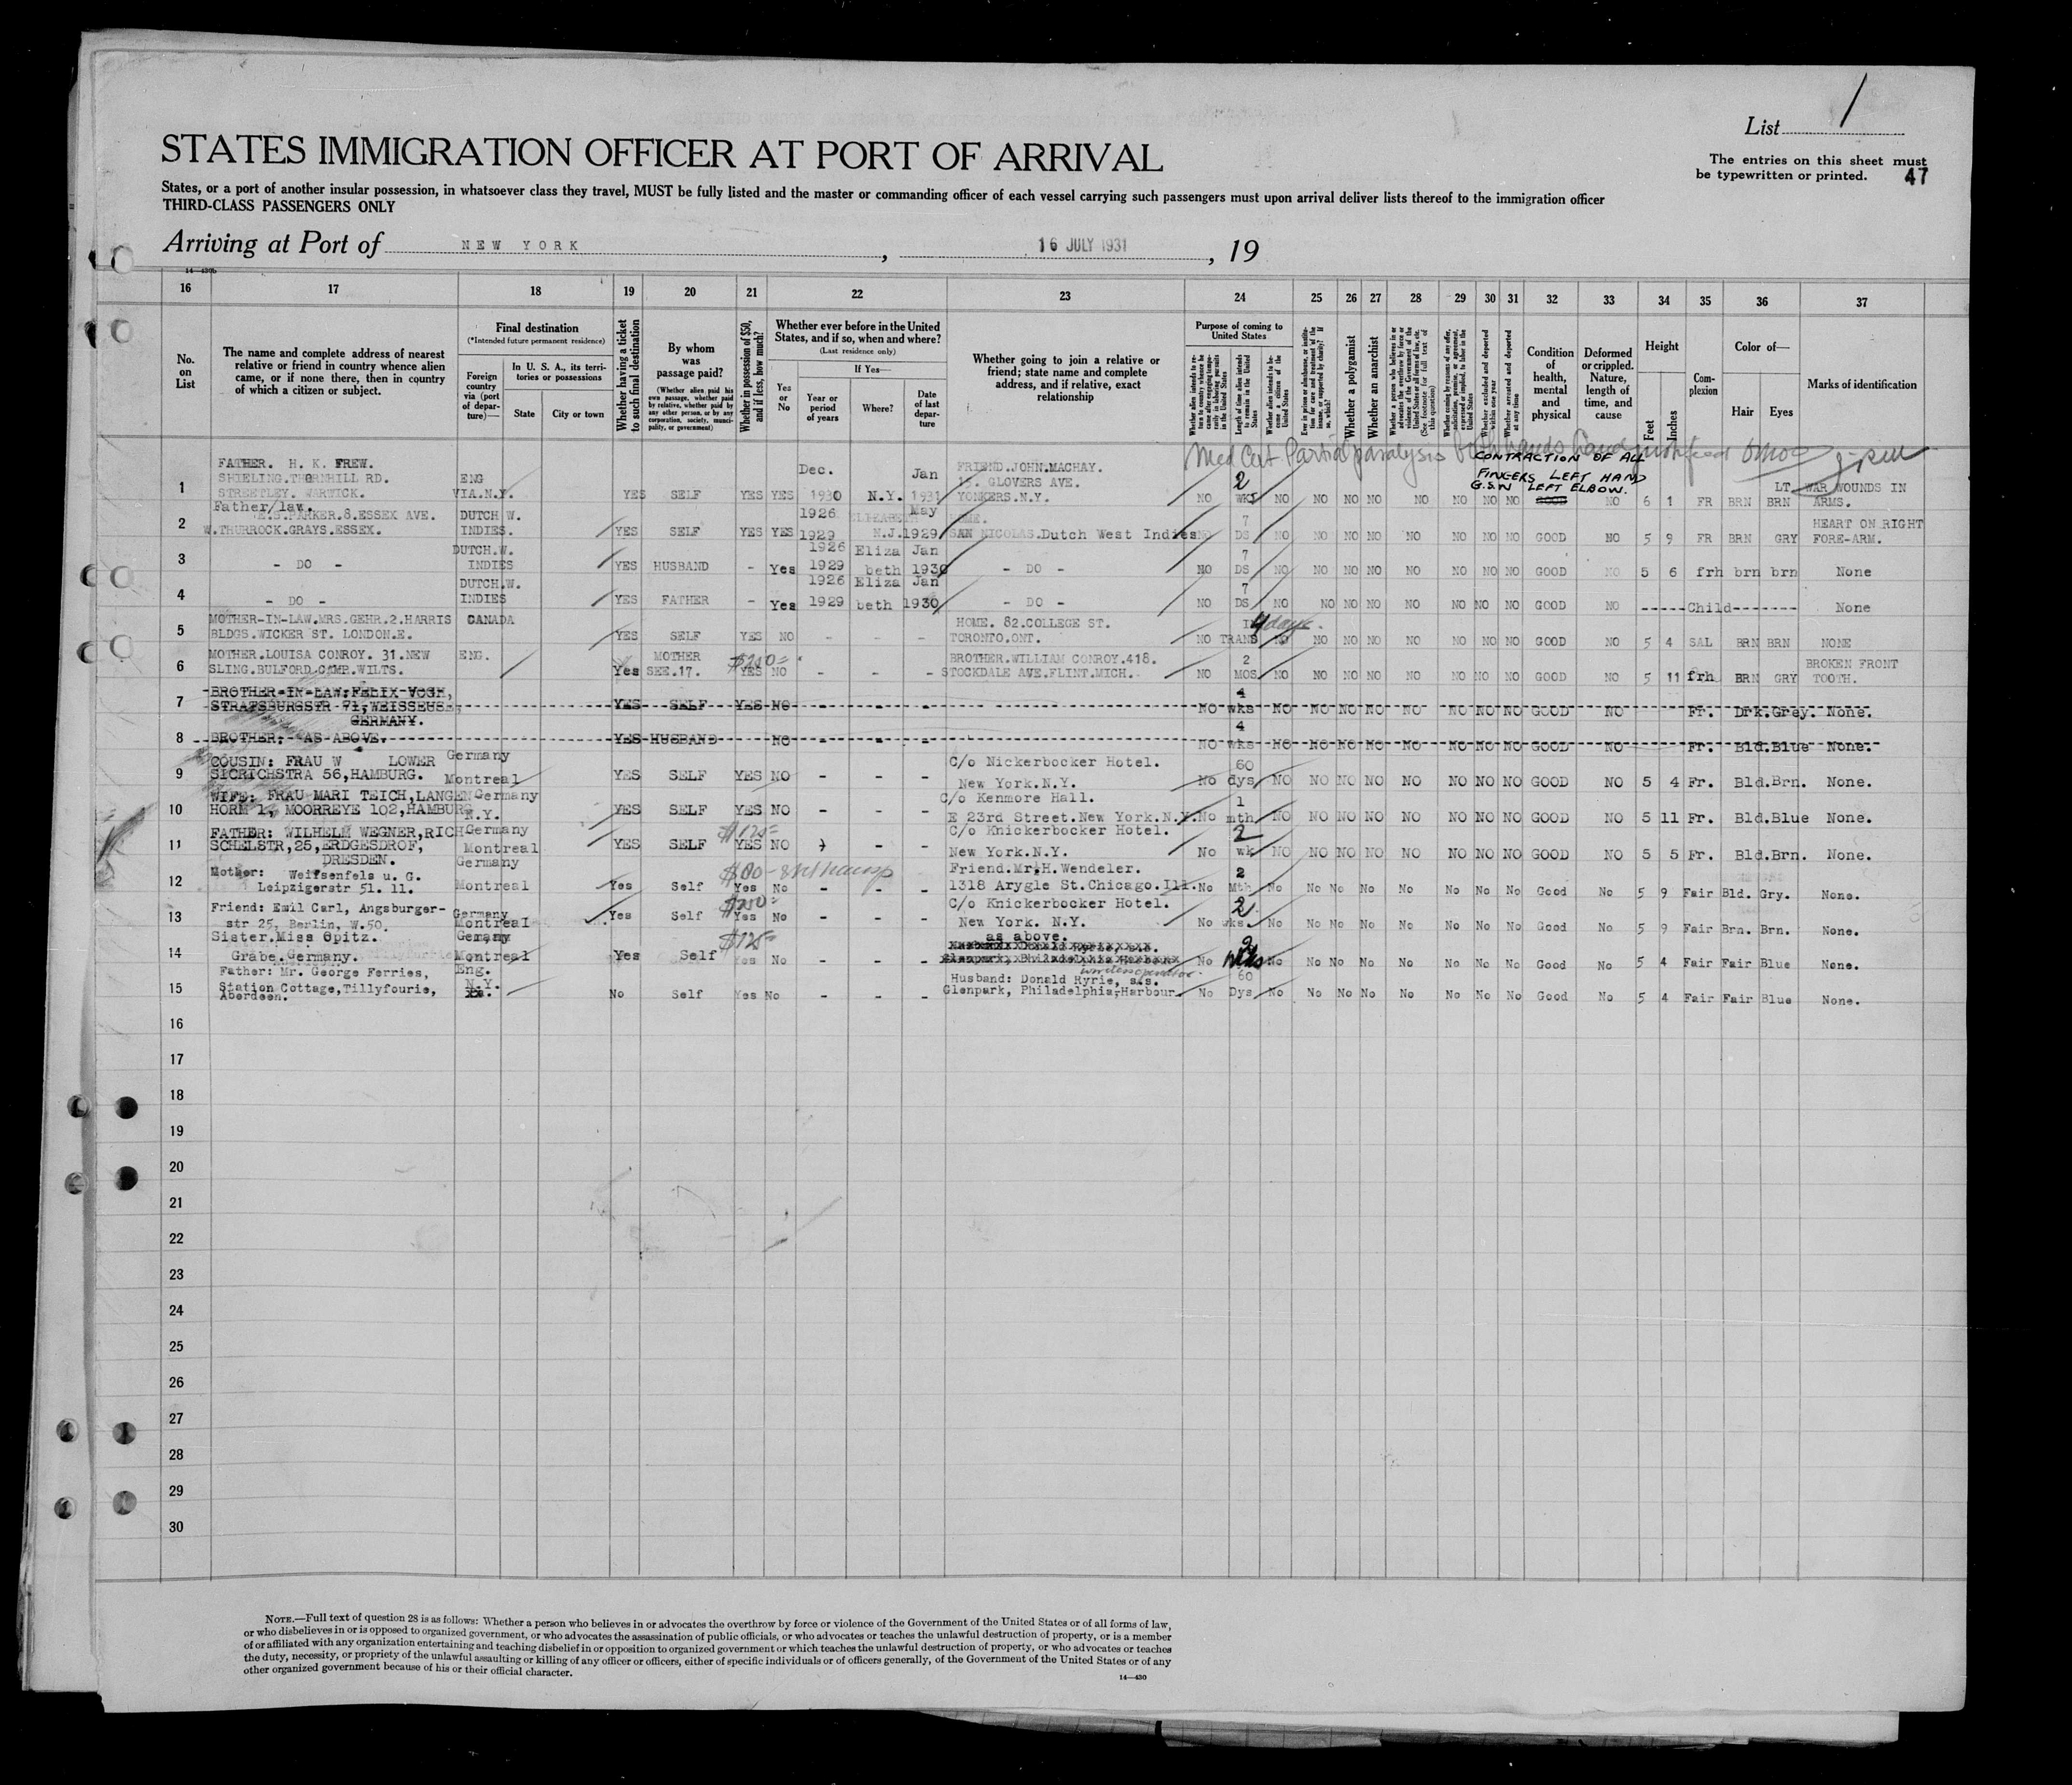 List 1
STATES IMMIGRATION OFFICER AT PORT OF ARRIVAL
The entries on this sheet must
be typewritten or printed. 47
States, or a port of another insular possession, in whatsoever class they travel, MUST be fully listed and the master or commanding officer of each vessel carrying such passengers must upon arrival deliver lists thereof to the immigration officer
THIRD-CLASS PASSENGERS ONLY
Arriving at Port of NEW YORK, 16 JULY 1931, 19
14—430b
16 17 18 19 20 21 22 23 24 25 26 27 28 29 30 31 32 33 34 35 36 37
No. on List
The name and complete address of nearest relative or friend in country whence alien came, or if none there, then in country of which a citizen or subject.
Final destination
(*Intended future permanent residence)
Foreign country via (port of departure)—
In U. S. A., its territories or possessions
State
City or town
Whether having a ticket to such final destination
By whom was passage paid?
(Whether alien paid his own passage, whether paid by relative, whether paid by any other person, or by any corporation, society, municipality, or government)
Whether in possession of $50, and if less, how much?
Whether ever before in the United States, and if so, when and where?
(Last residence only)
Yes or No
If Yes—
Year or period of years
Where?
Date of last departure
Whether going to join a relative or friend; state name and complete address, and if relative, exact relationship
Purpose of coming to United States
Length of time alien intends to remain in the United States
Whether alien intends to become a citizen of the United States
Whether a polygamist
Whether an anarchist
Condition of health, mental and physical
Deformed or crippled. Nature, length of time, and cause
Height
Feet
Inches
Complexion
Color of—
Hair
Eyes
Marks of identification
Med Cert Partial paralysis
CONTRACTION OF ALL
FINGERS LEFT HAND
G.S.W LEFT ELBOW.
FATHER. H. K. FREW. Dec. Jan FRIEND.JOHN.MACHAY.
SHIELING.THORNHILL RD. ENG 15. GLOVERS AVE. 2
1 STREETLEY. WARWICK. VIA.N.Y. YES SELF YES YES 1930 N.Y. 1931 YONKERS.N.Y. NO WKS NO NO NO NO NO NO NO NO GOOD NO 6 1 FR BRN LT. BRN WAR WOUNDS IN ARMS.
Father/law. 1926 ELIZABETH May HOME.
2 E.S.PARKER.8.ESSEX AVE. DUTCH W. 7 HEART ON RIGHT
W.THURROCK.GRAYS.ESSEX. INDIES. YES SELF YES YES 1929 N.J. 1929 SAN NICOLAS.Dutch West Indies NO DS NO NO NO NO NO NO NO NO GOOD NO 5 9 FR BRN GRY FORE-ARM.
DUTCH.W. 1926 Eliza Jan 7
3 - DO - INDIES YES HUSBAND - Yes 1929 beth 1930 - DO - NO DS NO NO NO NO NO NO NO NO GOOD NO 5 6 frh brn brn None
DUTCH.W. 1926 Eliza Jan 7
4 - DO - INDIES YES FATHER - Yes 1929 beth 1930 - DO - NO DS NO NO NO NO NO NO NO NO GOOD NO -----Child------- None
MOTHER-IN-LAW.MRS.GEHR.2.HARRIS CANADA HOME. 82.COLLEGE ST. IN 4 days.
5 BLDGS.WICKER ST. LONDON.E. YES SELF YES NO - - - TORONTO.ONT. NO TRANS NO NO NO NO NO NO NO NO GOOD NO 5 4 SAL BRN BRN NONE
MOTHER.LOUISA CONROY. 31.NEW ENG. MOTHER $250= BROTHER.WILLIAM CONROY.418. 2 BROKEN FRONT
6 SLING.BULFORD.CAMP.WILTS. Yes SEE.17. YES NO - - - STOCKDALE AVE.FLINT.MICH. NO MOS NO NO NO NO NO NO NO NO GOOD NO 5 11 frh BRN GRY TOOTH.
BROTHER-IN-LAW:FELIX VOSH, 4
7 STRAFSBURGSTR 71,WEISSEUSE, YES SELF YES NO - - - NO wks NO NO NO NO NO NO NO NO GOOD NO Fr. Drk.Grey. None.
GERMANY. 4
8 BROTHER: AS ABOVE. YES HUSBAND NO - - - NO wks NO NO NO NO NO NO NO NO GOOD NO Fr. Bld.Blue None.
COUSIN: FRAU W LOWER Germany C/o Nickerbocker Hotel. 60
9 SICRICHSTRA 56,HAMBURG. Montreal YES SELF YES NO - - - New York.N.Y. No dys NO NO NO NO NO NO NO NO GOOD NO 5 4 Fr. Bld.Brn. None.
WIFE: FRAU MARI TEICH,LANGEN Germany C/o Kenmore Hall. 1
10 HORM 1, MOORREYE 102,HAMBURG N.Y. YES SELF YES NO - - - E 23rd Street.New York.N.Y. No mth NO NO NO NO NO NO NO NO GOOD NO 5 11 Fr. Bld.Blue None.
FATHER: WILHELM WEGNER,RICH Germany $125= C/o Knickerbocker Hotel. 2
11 SCHELSTR,25,ERDGESDROF, Montreal YES SELF YES NO - - New York.N.Y. No wk NO NO NO NO NO NO NO NO GOOD NO 5 5 Fr. Bld.Brn. None.
DRESDEN.
Mother: Weifsenfels u. G. Germany $80- Friend.Mr.H.Wendeler. 2
12 Leipzigerstr 51. 11. Montreal Yes Self Yes No - - - 1318 Arygle St.Chicago.Ill. No Mth No No No No No No No No Good No 5 9 Fair Bld. Gry. None.
Friend: Emil Carl, Angsburger- Germany $200= C/o Knickerbocker Hotel. 2
13 str 25, Berlin, W.50. Montreal Yes Self Yes No - - - New York. N.Y. No wks. No No No No No No No No Good No 5 9 Fair Brn. Brn. None.
Sister.Miss Opitz. Germany $125= as above. 2
14 Grabe.Germany. Montreal Yes Self Yes No - - - No Wks No No No No No No No No Good No 5 4 Fair Fair Blue None.
Father: Mr. George Ferries, Eng. Husband: Donald Ryrie, s.s. wireless operator. 60
15 Station Cottage,Tillyfourie, N.Y. No Self Yes No - - - Glenpark, Philadelphia,Harbour. No Dys No No No No No No No No Good No 5 4 Fair Fair Blue None.
Aberdeen.
16
17
18
19
20
21
22
23
24
25
26
27
28
29
30
NOTE.—Full text of question 28 is as follows: Whether a person who believes in or advocates the overthrow by force or violence of the Government of the United States or of all forms of law,
or who disbelieves in or is opposed to organized government, or who advocates the assassination of public officials, or who advocates or teaches the unlawful destruction of property, or is a member
of or affiliated with any organization entertaining and teaching disbelief in or opposition to organized government or which teaches the unlawful destruction of property, or who advocates or teaches
the duty, necessity, or propriety of the unlawful assaulting or killing of any officer or officers, either of specific individuals or of officers generally, of the Government of the United States or of any
other organized government because of his or their official character.
14—430